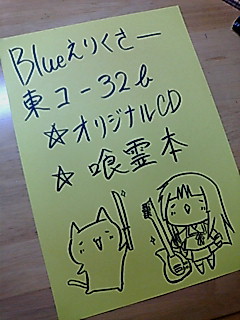 Blueえりくさー
東コ-32b
☆オリジナルCD
☆喰霊本